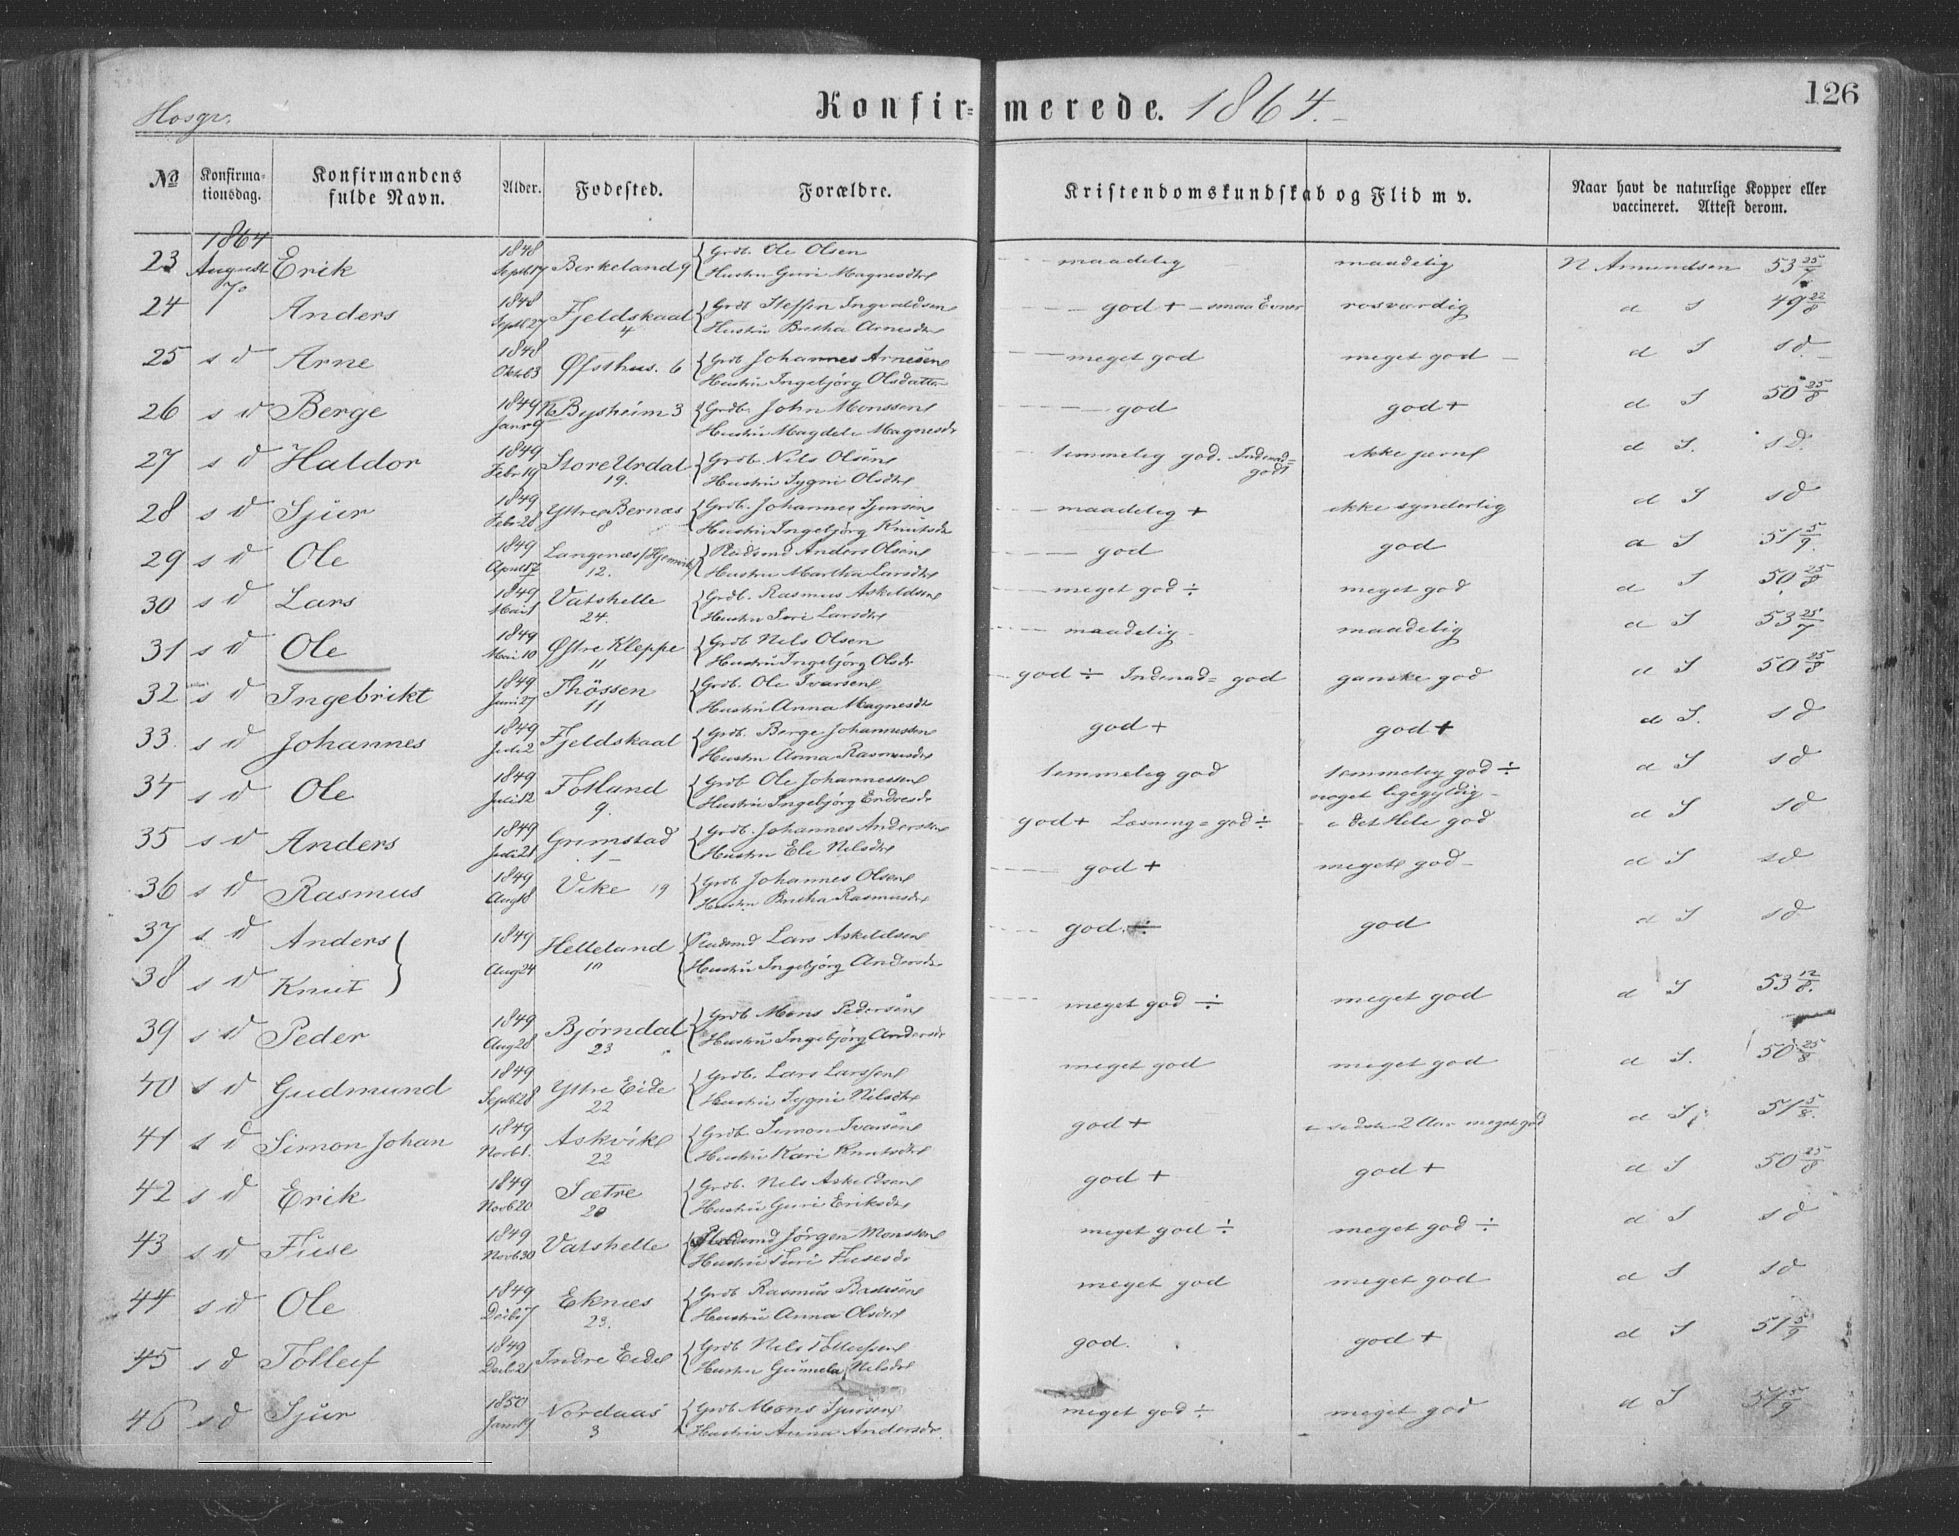 Hosgr.
Konfirmerede. 1864.
126
No
Konfirmationsdag.
Konfirmandens fulde Navn.
Alder.
Fødested.
Forældre.
Kristendomskundskab og Flid m v.
Naar havt de naturlige Kopper eller vaccineret. Attest derom.
23 1864 August 7 Erik 1848 Septb 17 Birkeland 9 Grdb. Ole Olsen Hustru Guri Magnesdtr maadelig maadelig N Amundsen 53 25/7
24 Anders 1848 Septb 27 Fjeldskaal 4 Grdb Steffen Ingvaldsen Hustru Bretha Arnesdtr god + - smaa Evner rosværdig d S 49 22/8
25 s d Arne 1848 Oktob 3 Øfsthus. 6 Grdb. Johannes Arnesen Hustru Ingebjørg Olsdatter meget god meget god d S s d.
26 s d Berge 1849 Janr 9 Bysheim 3 Grdb. John Monssen Hustru Magdele Magnesdr god god + d S 50 25/8
27 s d Haldor 1849 Febr 19 Store Urdal 19. Grdb Nils Olsen Hustru Sygni Olsdtr temmelig god. Indenad= god ikke jævn d S. s d.
28 s d Sjur 1849 Febr 28 Yttre Bernæs 8 Grdb. Johannes Sjursen Hustru Ingebjørg Knutsdr maadelig + ikke synderlig d S s d
29 s d Ole 1849 April 17 Langenæs/ 12. Pladsmd Anders Olsen Hustru Martha Larsdtr god god d S 51 5/9.
30 s d Lars 1849 Mai 1 Vatshelle 24. Grdb. Rasmus Askildsen Hustru Siri Larsdtr meget god ÷ meget god d S 50 25/8
31 s d Ole 1849 Mai 10 Østre Kleppe 11 Grdb Nils Olsen Hustru Ingebjørg Olsdr maadelig maadelig d S 53 25/7
32 s d Ingebrikt 1849 Juni 27 Thössen 11 Grdb. Ole Ivarsen Hustru Anna Magnesdtr god ÷ Indenad= god ganske god d S 50 25/8
33 s d Johannes 1849 Juli 2 Fjeldskaal Grdb. Berge Johannessen Hustru Anna Rasmusdtr god + god + d S. s d
34 s d Ole 1849 Juli 12 Fotland 9. Grdb Ole Johannessen Hustru Ingebjørg Endresdr temmelig god temmelig god ÷ noget ligegyldig d S s d
35 s d Anders 1849 Juli 21 Grimstad 1 Grdb. Johannes Andersen Hustru Eli Nilsdtr god + Læsning = god ÷ i det Hele god d S s d
36 s d Rasmus 1849 Aug 18 Vike 19 Grdb. Johannes Olsen Hustru Bretha Rasmusdtr god + meget god d S s d
37 s d Anders 1849 Aug 24 Helleland 10 Pladsmd Lars Askildsen Hustru Ingebjørg Andersdr god. god d S s d
38 s d Knut meget god ÷ meget god d S 53 12/8.
39 s d Peder 1849 Aug 28 Bjørndal 23 Grdb Mons Pedersen Hustru Ingebjørg Andersdr meget god meget god d S. 50 25/8
40 s d Gudmund 1849 Septb 28 Yttre Eide 22 Grdb. Lars Larssen Hustru Sygni Nilsdtr god + i sidste 2 Aar meget god d S 51 5/8.
41 s d Simon Johan 1849 Novb 1. Askvik 22 Grdb Simon Ivarsen Hustru Kari Knutsdtr god + god + d S 50 25/8
42 s d Erik 1849 Novb 20 Sætre 20 Grdb. Nils Askildsen Hustru Guri Eriksdtr meget god ÷ meget god ÷ d S s d
43 s d Fuse 1849 Novb 30 Vatshelle Pladsmd Jørgen Monssen Hustru Siri Fusesdr meget god meget god d S s d
44 s d Ole 1849 Decb 7 Eknæs 23. Grdb Rasmus Hustru Anna Olsdtr god. god + d S 51 5/9
45 s d Tollef 1849 Decb 21 Indre Eide Grdb Nils Tollefsen Hustru Gunnela Nilsdtr meget god ÷ meget god d S 51 5/9
46 s d Sjur 1850 Janr 9 Nordaas 3 Grdb Mons Sjursen Hustru Anna Andersdr.